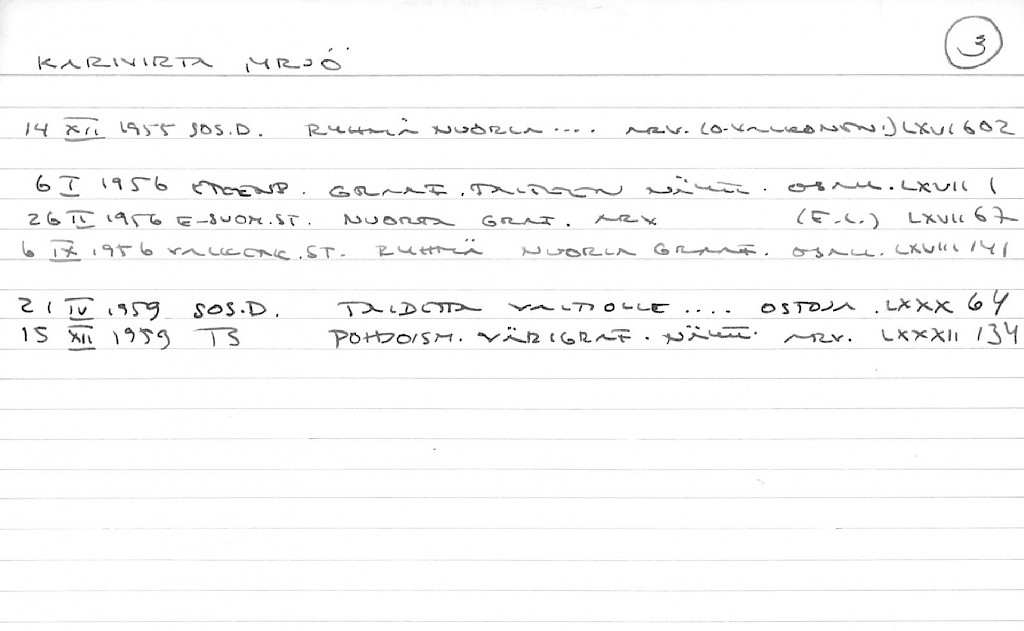 3
KARIVIRTA YRJÖ
14 XII 1955 SOS.D. RYHMÄ NUORIA .... ARV. (O. VALKONEN.) LXVI 602
6 I 1956 ETEENP. GRAAF. TAITEEN NÄYTT. OSALL. LXVII 1
26 II 1956 E-SUOM.ST. NUORTA GRAF. ARV. (E.L.) LXVII 67
6 IX 1956 VALKEAK.ST. RYHMÄ NUORIA GRAAF. OSALL. LXVIII 141
21 IV 1959 SOS.D. TAIDETTA VALTIOLLE .... OSTOJA . LXXX 64
15 XII 1959 TS POHDOISM. VÄRIGRAF. NÄYTT. ARV. LXXXII 134